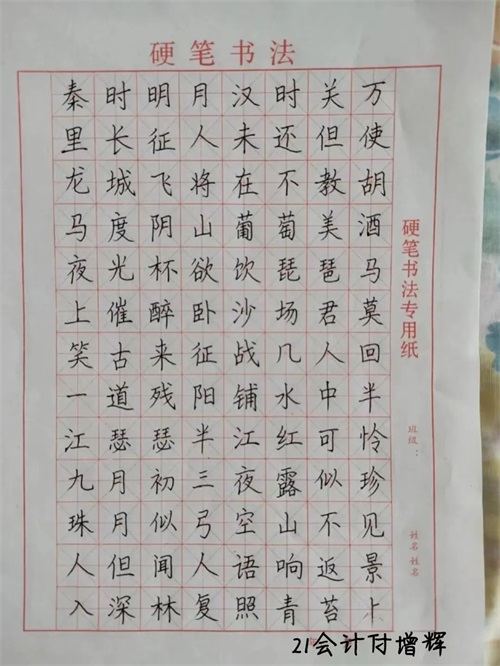 硬笔书法
秦时明月汉时关万
里长征人未还但使
龙城飞将在不教胡
马度阴山葡萄美酒
夜光杯欲饮琵琶马
上催醉卧沙场君莫
笑古来征战几人回
一道残阳铺水中半
江瑟瑟半江红可怜
九月初三夜露似珍
珠月似弓空山不见
人但闻人语响返景
入深林复照青苔上
硬笔书法专用纸
班级：
姓名 姓名
21会计付增辉